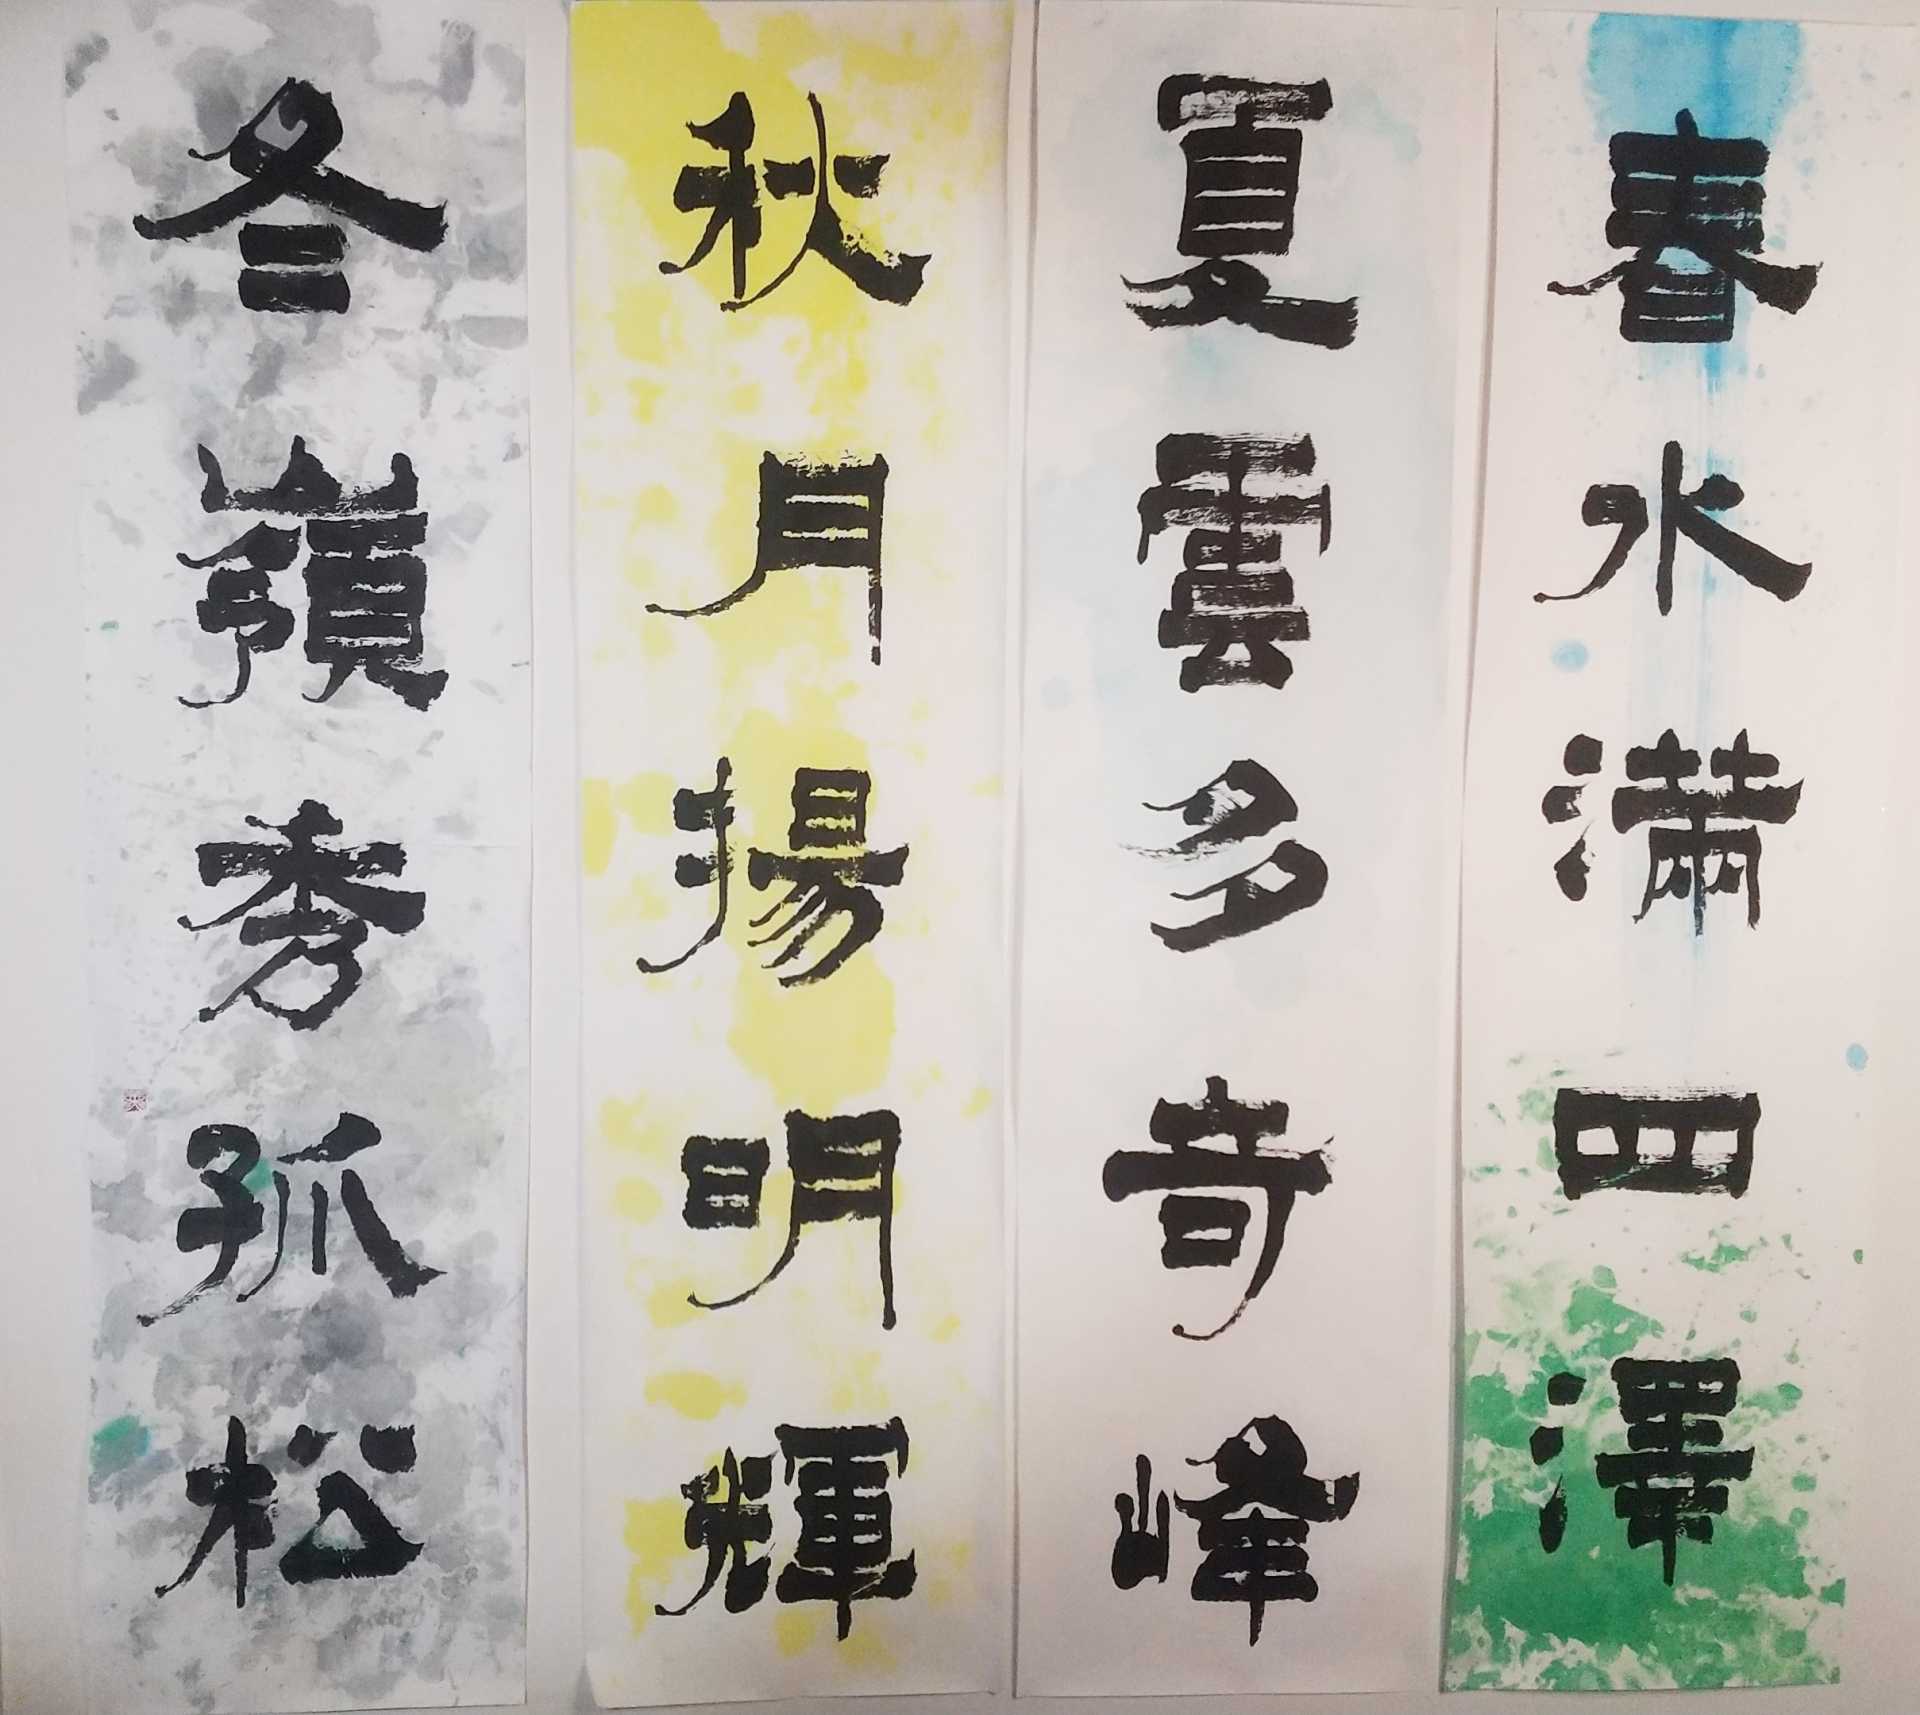 春水満四澤
夏雲多奇峰
秋月揚明輝
冬嶺秀孤松